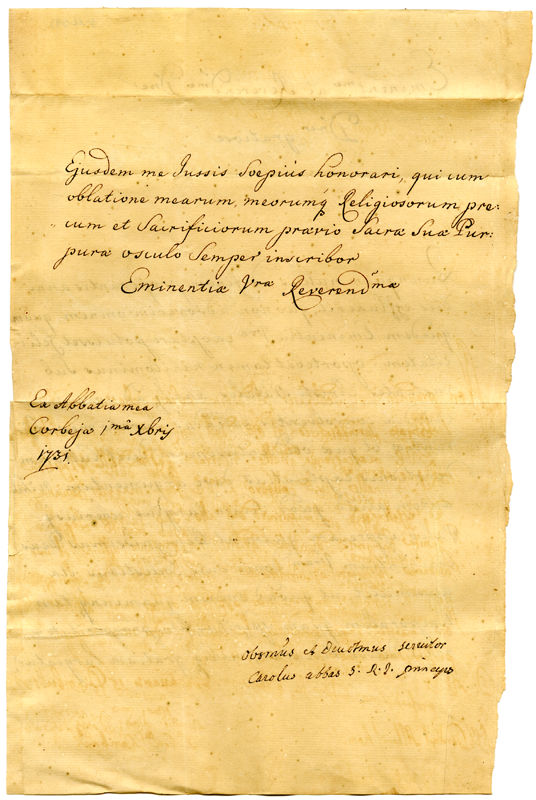 Ejusdem me Jussis Soepiùs honorari, qui cum
oblatione mearum, meorumq Religiosorum pre:
cum et Sacrificiorum prævio Sacræ Suæ Pur:
puræ osculo Semper inscribor
Eminentiæ Vræ Reverendmæ
Ex Abbatia mea
Corbejæ 1mâ Xbris
1731.
obsmus et Devotmus servitor
Carolus abbas S. R. I. princeps